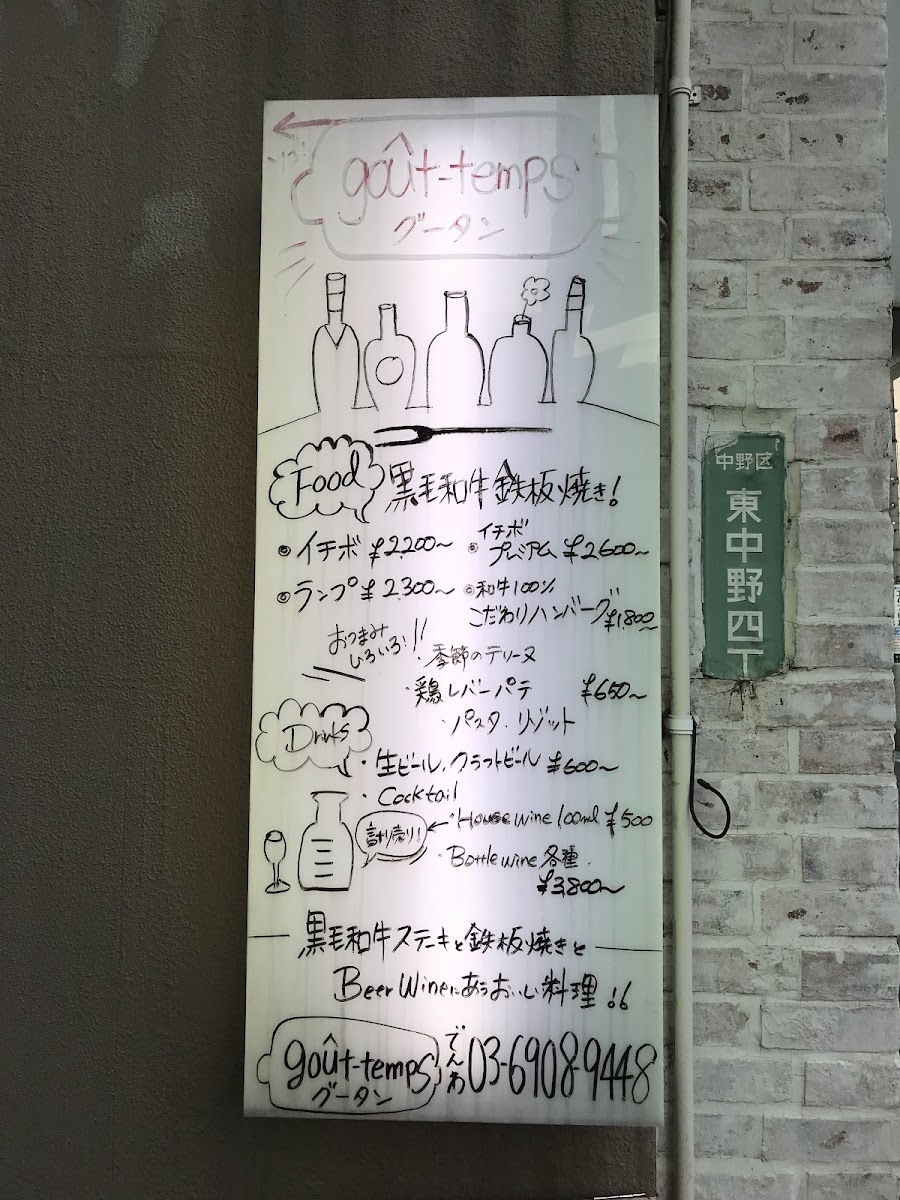 goût-temps
グータン
Food
黒毛和牛鉄板焼き!
◎イチボ ¥2,200〜
◎イチボ
プレミアム ¥2600〜
◎ランプ ¥2,300〜
◎和牛100%
こだわりハンバーグ
¥1,800〜
おつまみ
いろいろ!!
・季節のテリーヌ
・鶏レバーパテ ¥650〜
・パスタ・リゾット
Drinks
・生ビール、クラフトビール ¥600〜
・Cocktail
計り売り!
・House wine 100ml ¥500
・Bottle wine 各種
¥3,800〜
黒毛和牛ステーキと鉄板焼きと
Beer Wineにあうおいしい料理!!
goût-temps
グータン
でんわ
03-6908-9448
中野区
東中野四丁